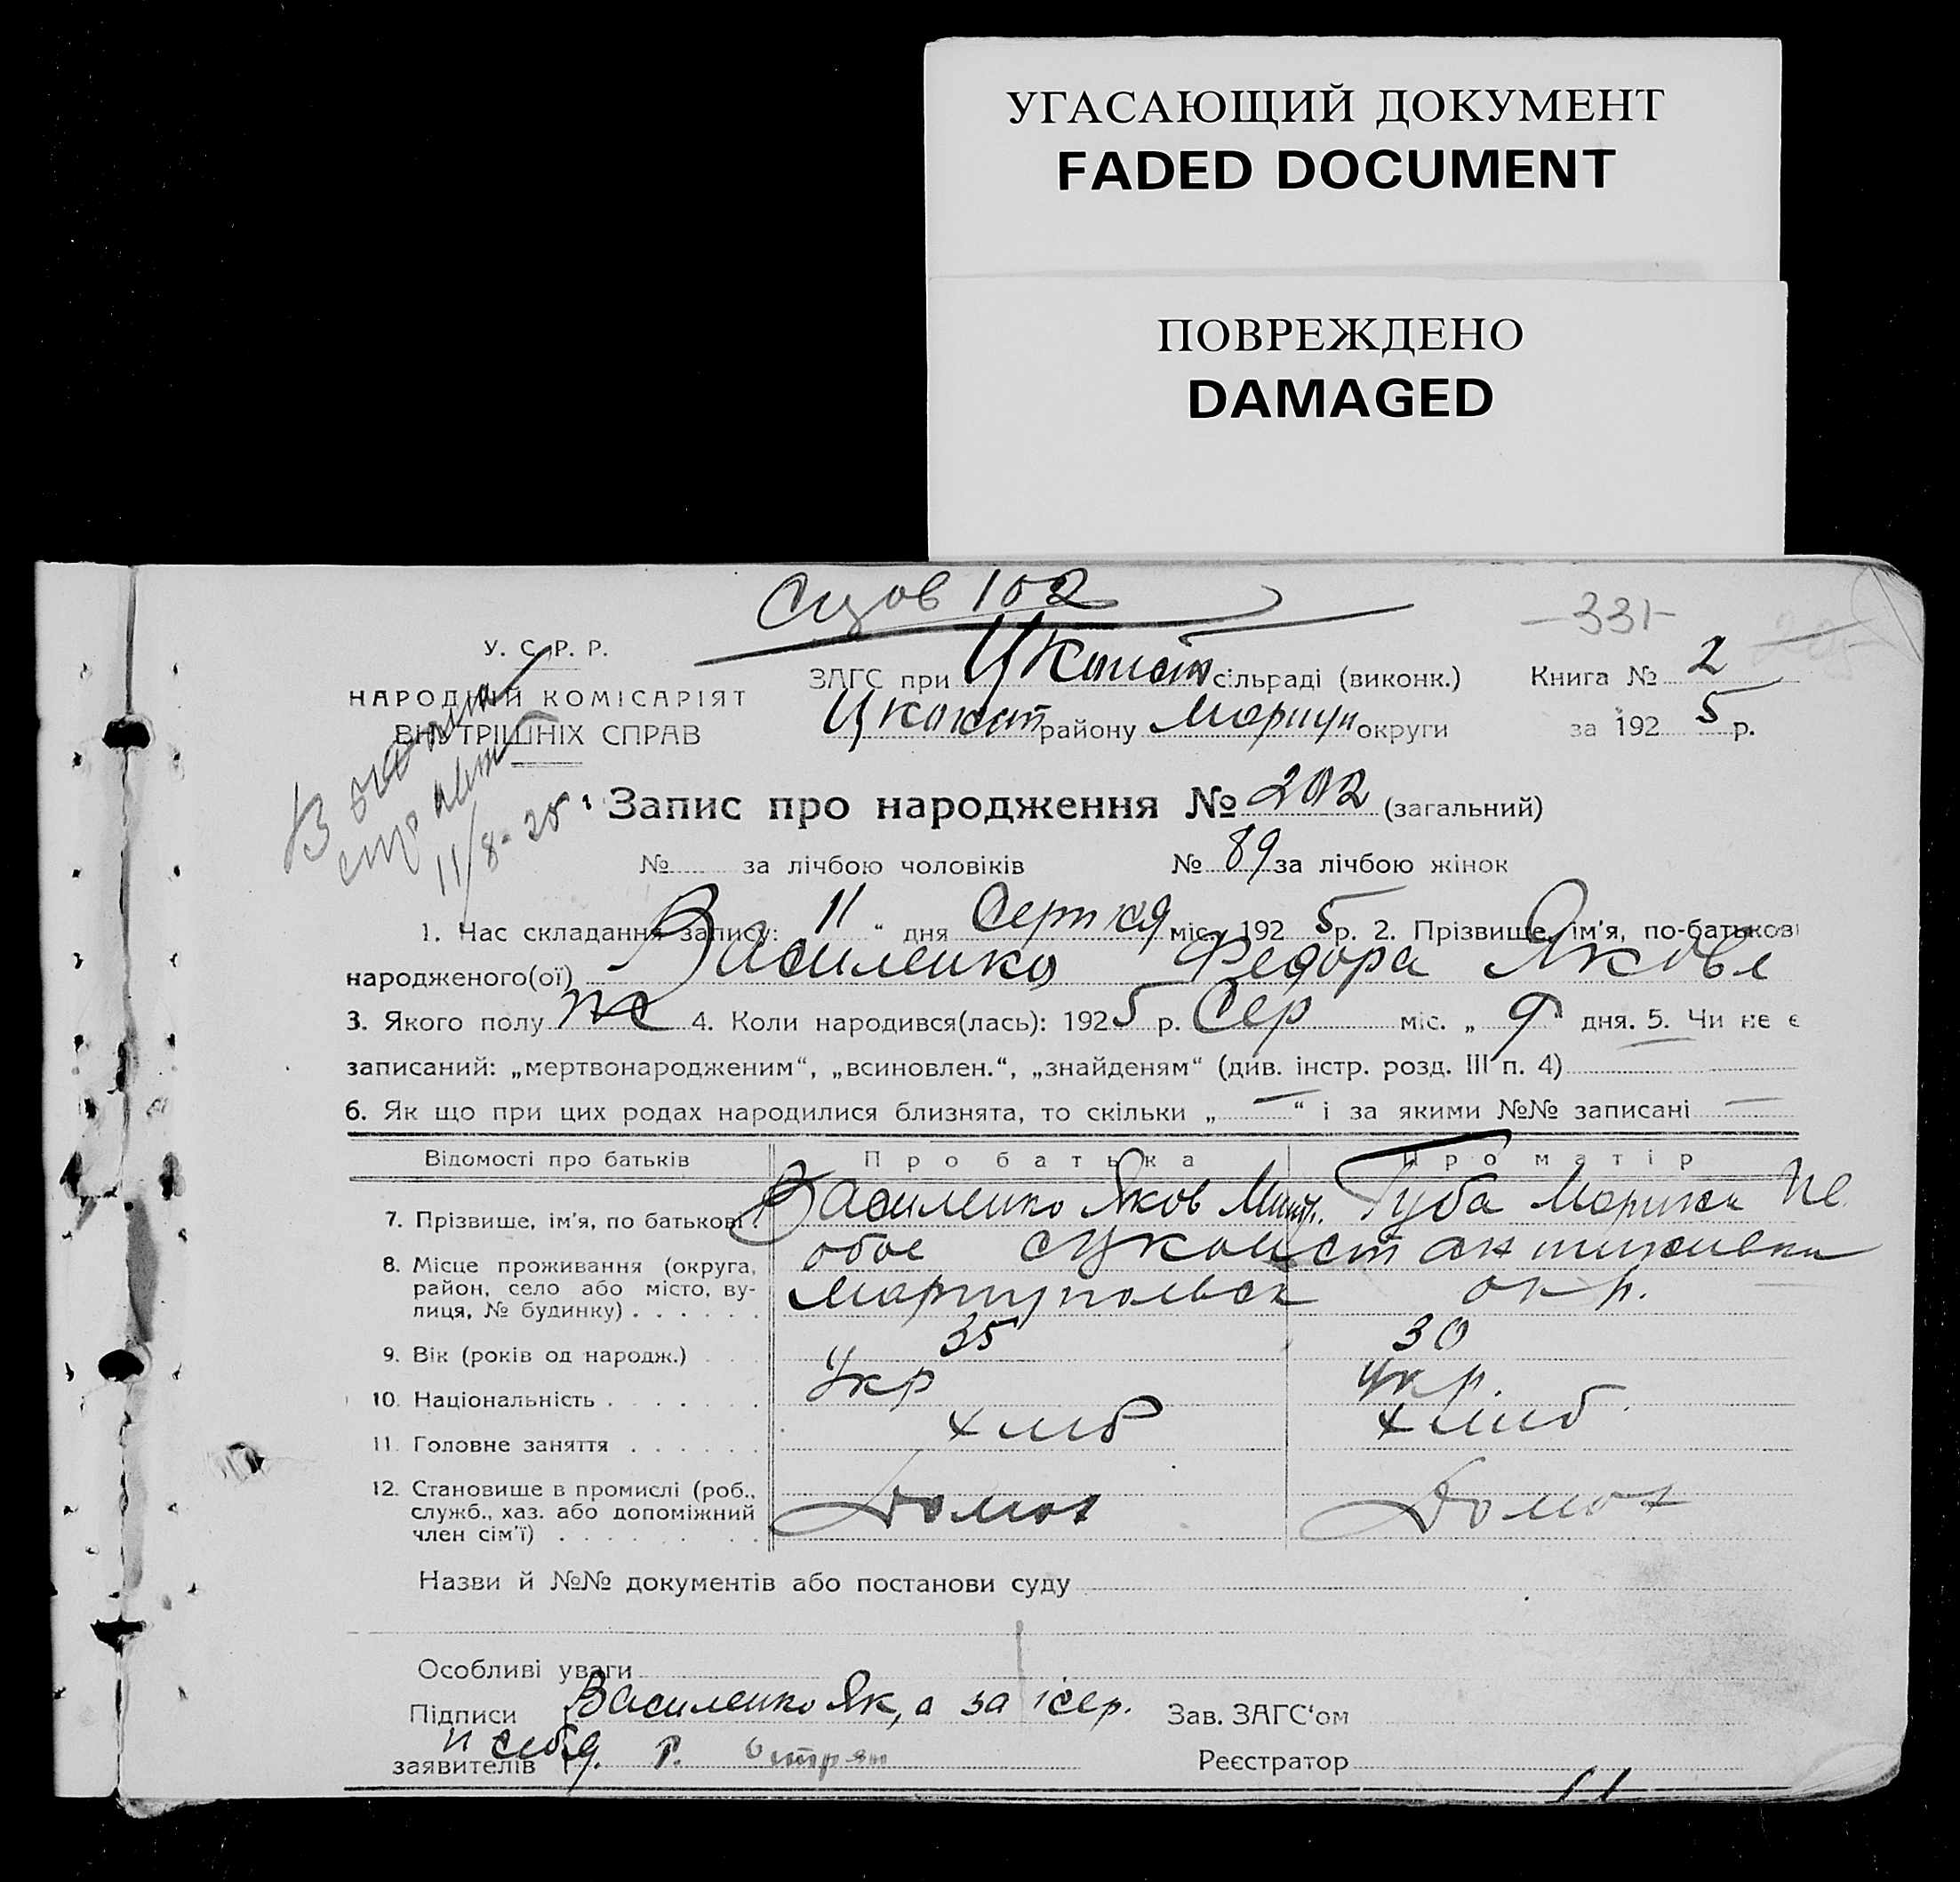 УГАСАЮЩИЙ ДОКУМЕНТ
FADED DOCUMENT
ПОВРЕЖДЕНО
DAMAGED
102
-331-
У. С. Р. Р.
НАРОДНІЙ КОМІСАРІЯТ
ВНУТРІШНІХ СПРАВ
ЗАГС при ЦКонст сільраді (виконк.) Книга № 2
ЦКонст району Мариуп округи за 1925 р.
11/8-25
Запис про народження № 202 (загальний)
№ за лічбою чоловіків № 89 за лічбою жінок
1. Час складання запису: 11 " дня Серпня міс. 1925 р. 2. Прізвище, ім'я, по-батькові
народженого(ої) Василенко Федора Яковл
3. Якого полу ж 4. Коли народився(лась): 1925 р. Сер міс. „ 9 " дня. 5. Чи не є
записаний: „мертвонародженим", „всиновлен.", „знайденям" (див. інстр. розд. III п. 4)
6. Як що при цих родах народилися близнята, то скільки „ — " і за якими №№ записані —
Відомості про батьків Про батька Про матір
7. Прізвище, ім'я, по батькові Василенко Яков Губа Марина
8. Місце проживання (округа, район, село або місто, вулиця, № будинку) обое с Цконстантиновки
Мариупольск окр.
9. Вік (років од народж.) 35 30
10. Національність Укр Укр.
11. Головне заняття хліб хліб
12. Становище в промислі (роб., служб., хаз. або допоміжний член сім'ї) Домох Домох
Назви й №№ документів або постанови суду
Особливі уваги
Підписи Василенко Як, а за Зав. ЗАГС'ом
заявителів Реєстратор